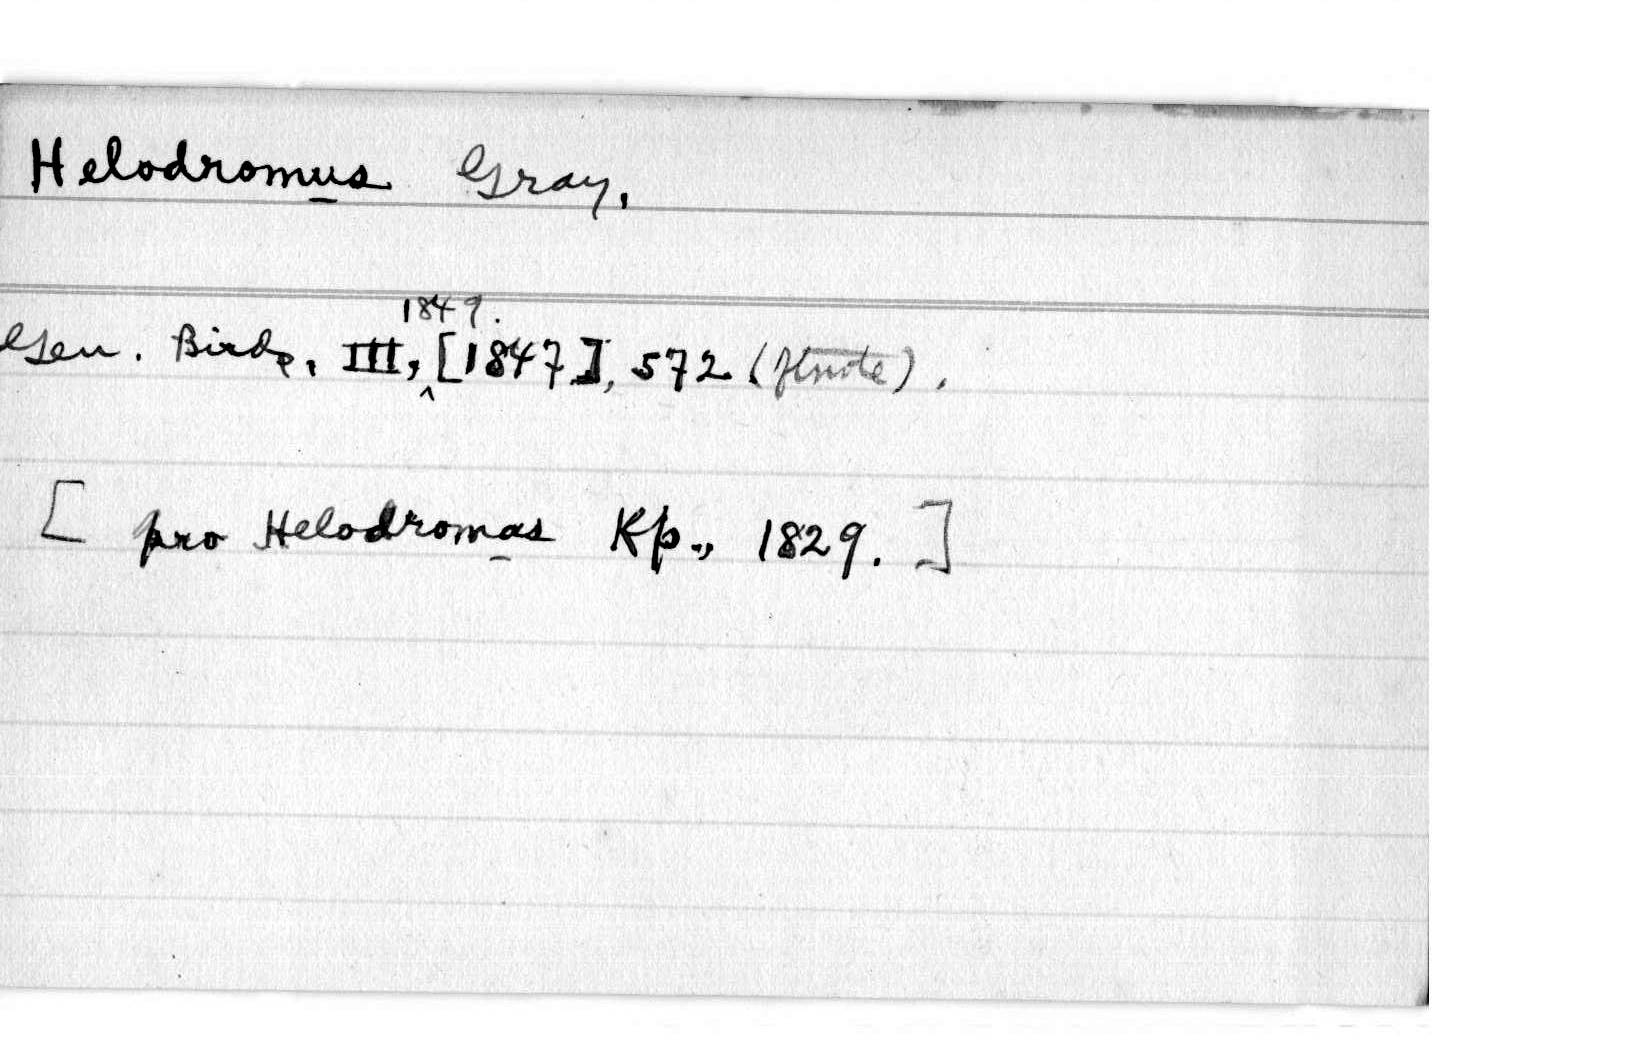 Helodromus Gray,
Gen. Birds, III, 1849. [1847], 572 (ftnote).
[ pro Helodromas Kp., 1829. ]